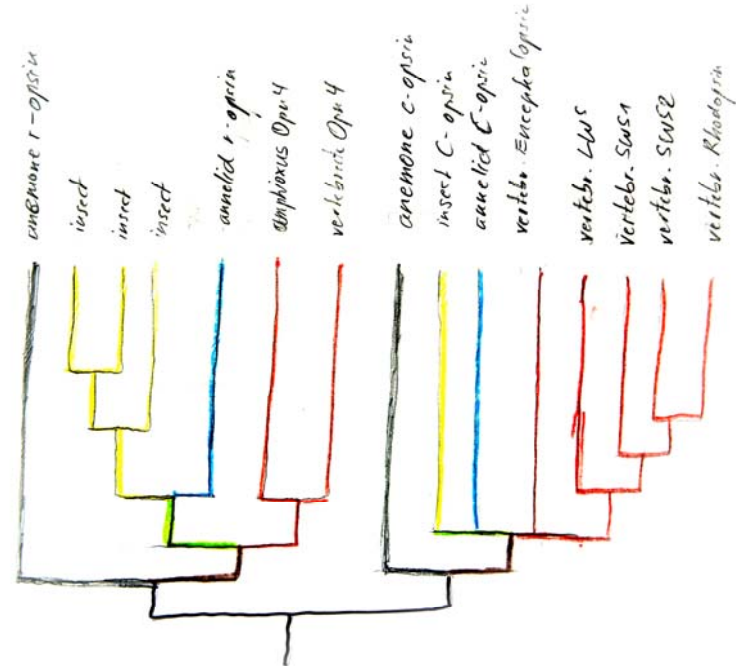 anemone r-opsin
insect
insect
insect
annelid r-opsin
amphioxus Opn4
vertebrate Opn4
anemone c-opsin
insect C-opsin
annelid C-opsin
vertebr. Encephalopsin
vertebr. LWS
vertebr. SWS1
vertebr. SWS2
vertebr. Rhodopsin